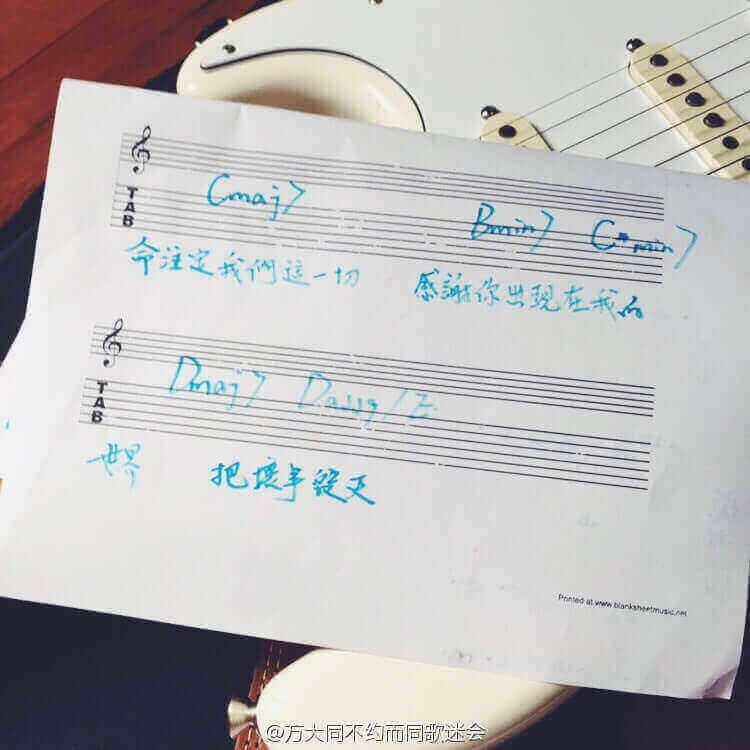 TAB
Cmaj7 Bmin7 C#min7
命注定我們這一切 感謝你出現在我的
TAB
Dmaj7 Daug/E
世界 把握手綻天
Printed at www.blanksheetmusic.net
@方大同不约而同歌迷会